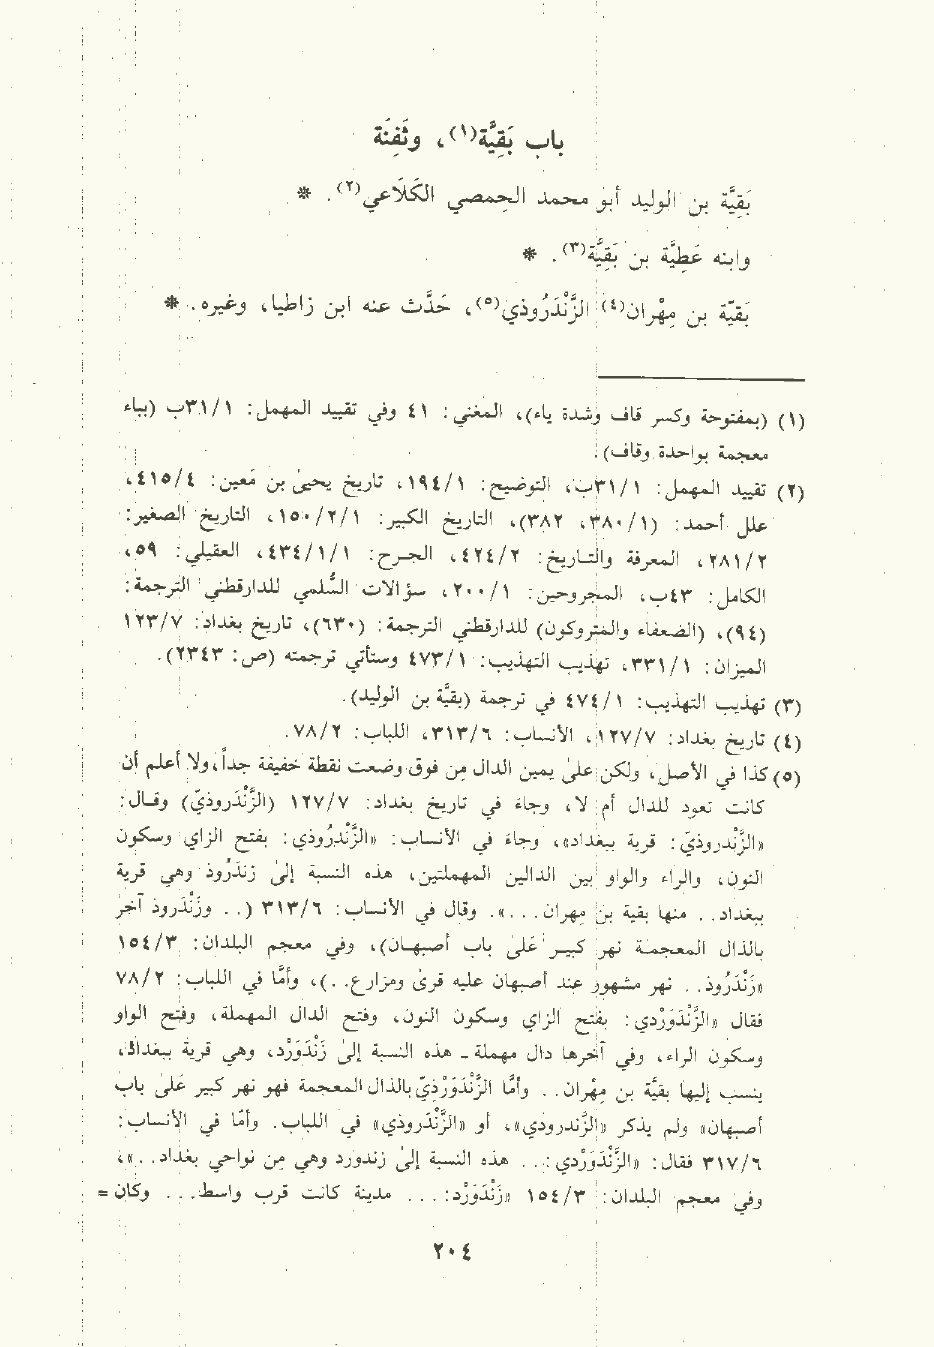 باب بَقِيَّة(١)، وثَفِنَة
بَقِيَّة بن الوليد أبو محمد الحِمصي الكَلَاعي(٢). *
وابنه عَطِيَّة بن بَقِيَّة(٣). *
بَقيّة بن مِهْران(٤) الزَّنْدَرُوذي(٥)، حَدَّث عنه ابن زاطيا، وغيره. *
(١) (بمفتوحة وكسر قاف وشدة ياء)، المغني: ٤١ وفي تقييد المهمل: ٣١/١ب (بباء
معجمة بواحدة وقاف).
(٢) تقييد المهمل: ٣١/١ب، التوضيح: ١٩٤/١، تاريخ يحيىٰ بن مَعين: ٤١٥/٤،
علل أحمد: (٣٨٠/١، ٣٨٢)، التاريخ الكبير: ١٥٠/٢/١، التاريخ الصغير:
٢٨١/٢، المعرفة والتـاريخ: ٤٢٤/٢، الجـرح: ٤٣٤/١/١، العقيلي: ٥٩،
الكامل: ٤٣ب، المجروحين: ٢٠٠/١، سؤالات السُّلمي للدارقطني الترجمة:
(٩٤)، (الضعفاء والمتروكون) للدارقطني الترجمة: (٦٣٠)، تاريخ بغداد: ١٢٣/٧
الميزان: ٣٣١/١، تهذيب التهذيب: ٤٧٣/١ وستأتي ترجمته (ص: ٢٣٤٣).
(٣) تهذيب التهذيب: ٤٧٤/١ في ترجمة (بقيَّة بن الوليد).
(٤) تاريخ بغداد: ١٢٧/٧، الأنساب: ٣١٣/٦، اللباب: ٧٨/٢.
(٥) كذا في الأصل، ولكن علىٰ يمين الدال من فوق وضعت نقطة خفيفة جداً، ولا أعلم أن
كانت تعود للدال أم لا، وجاء في تاريخ بغداد: ١٢٧/٧ (الزَّنْدَروذيّ) وقـال:
«الزَّنْدروذيّ: قرية ببغداد»، وجاء في الأنسـاب: «الزَّنْدَرُوذي: بفتح الزاي وسكون
النون، والراء والواو بين الدالين المهملتين، هذه النسبة إلىٰ زندَرُوذ وهي قرية
ببغداد.. منها بقية بن مِهران...». وقال في الأنساب: ٣١٣/٦ (.. وزَنْدَروذ آخر
بالذال المعجمـة نهر كبيـر عَلىٰ باب أصبهـان)، وفي معجم البلدان: ١٥٤/٣
«زَنْدَرُوذ.. نهر مشهور عند أصبهان عليه قرىٰ ومزارع..)، وأمَّا في اللباب: ٧٨/٢
فقال «الزَّنْدَوَرْدي: بفتح الزاي وسكون النون، وفتح الدال المهملة، وفتح الواو
وسكون الراء، وفي آخرها دال مهملة ـ هذه النسبة إلىٰ زَنْدَوَرْد، وهي قرية ببغداد،
ينسب إليها بقيَّة بن مِهْران.. وأمَّا الزَّنْدَوَرْذِيّ بالذال المعجمة فهو نهر كبير عَلىٰ باب
أصبهان» ولم يذكر «الزَّندروذي»، أو «الزَّنْدَروذي» في اللباب. وأمَّا في الأنساب:
٣١٧/٦ فقال: «الزَّنْدَوَرْدي:.. هذه النسبة إلىٰ زندورد وهي مِن نواحي بغداد..»،
وفي معجم البلدان: ١٥٤/٣ «زَنْدَوَرْد: ... مدينة كانت قرب واسط... وكان =
٢٠٤